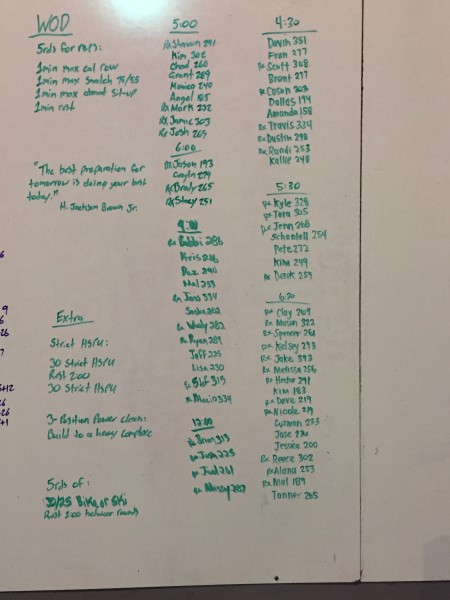 WOD
5rds for reps:
1min max cal row
1min max Snatch 75/55
1min max abmat sit-up
1min rest
"The best preparation for
tomorrow is doing your best
today."
H. Jackson Brown Jr.
Extra
Strict HSPU:
30 Strict HSPU
Rest 2:00
30 Strict HSPU
3-Position Power Clean:
Build to a heavy complex
5rds of:
30/25 Bike or Ski
Rest 1:00 between rounds
5:00
Rx Shawn 291
Kim 302
Chad 260
Grant 289
Monica 240
Angel 185
Rx Mark 232
Rx Jamie 303
Rx Josh 265
6:00
Rx Jason 193
Cayln 279
Rx Brady 265
Rx Stacy 251
9:00
Rx Bobbi 286
Kris 226
Paz 290
Mal 253
Rx Jons 334
Sasha 202
Rx Wody 282
Rx Ryan 289
Jeff 225
Lisa 230
Rx Stef 315
Rx Maria 334
12:00
Rx Brian 313
Rx Josh 225
Rx Jud 261
Rx Missy 287
4:30
Devin 351
Fran 277
Rx Scott 308
Brent 277
Rx Coson 303
Dallas 194
Amanda 158
Rx Travis 334
Rx Dustin 298
Rx Randi 253
Kallie 248
5:30
Rx Kyle 328
Rx Tara 305
Rx Jenn 268
Schantell 254
Pete 272
Kim 249
Rx Derek 259
6:30
Rx Clay 269
Rx Mason 322
Rx Spencer 261
Rx Kelsey 293
Rx Jake 393
Rx Melissa 256
Rx Hector 291
Kim 183
Rx Dave 219
Rx Nicole 219
Guzman 283
Jose 230
Jessica 200
Rx Reece 302
Rx Alana 253
Rx Mal 189
Tanner 265